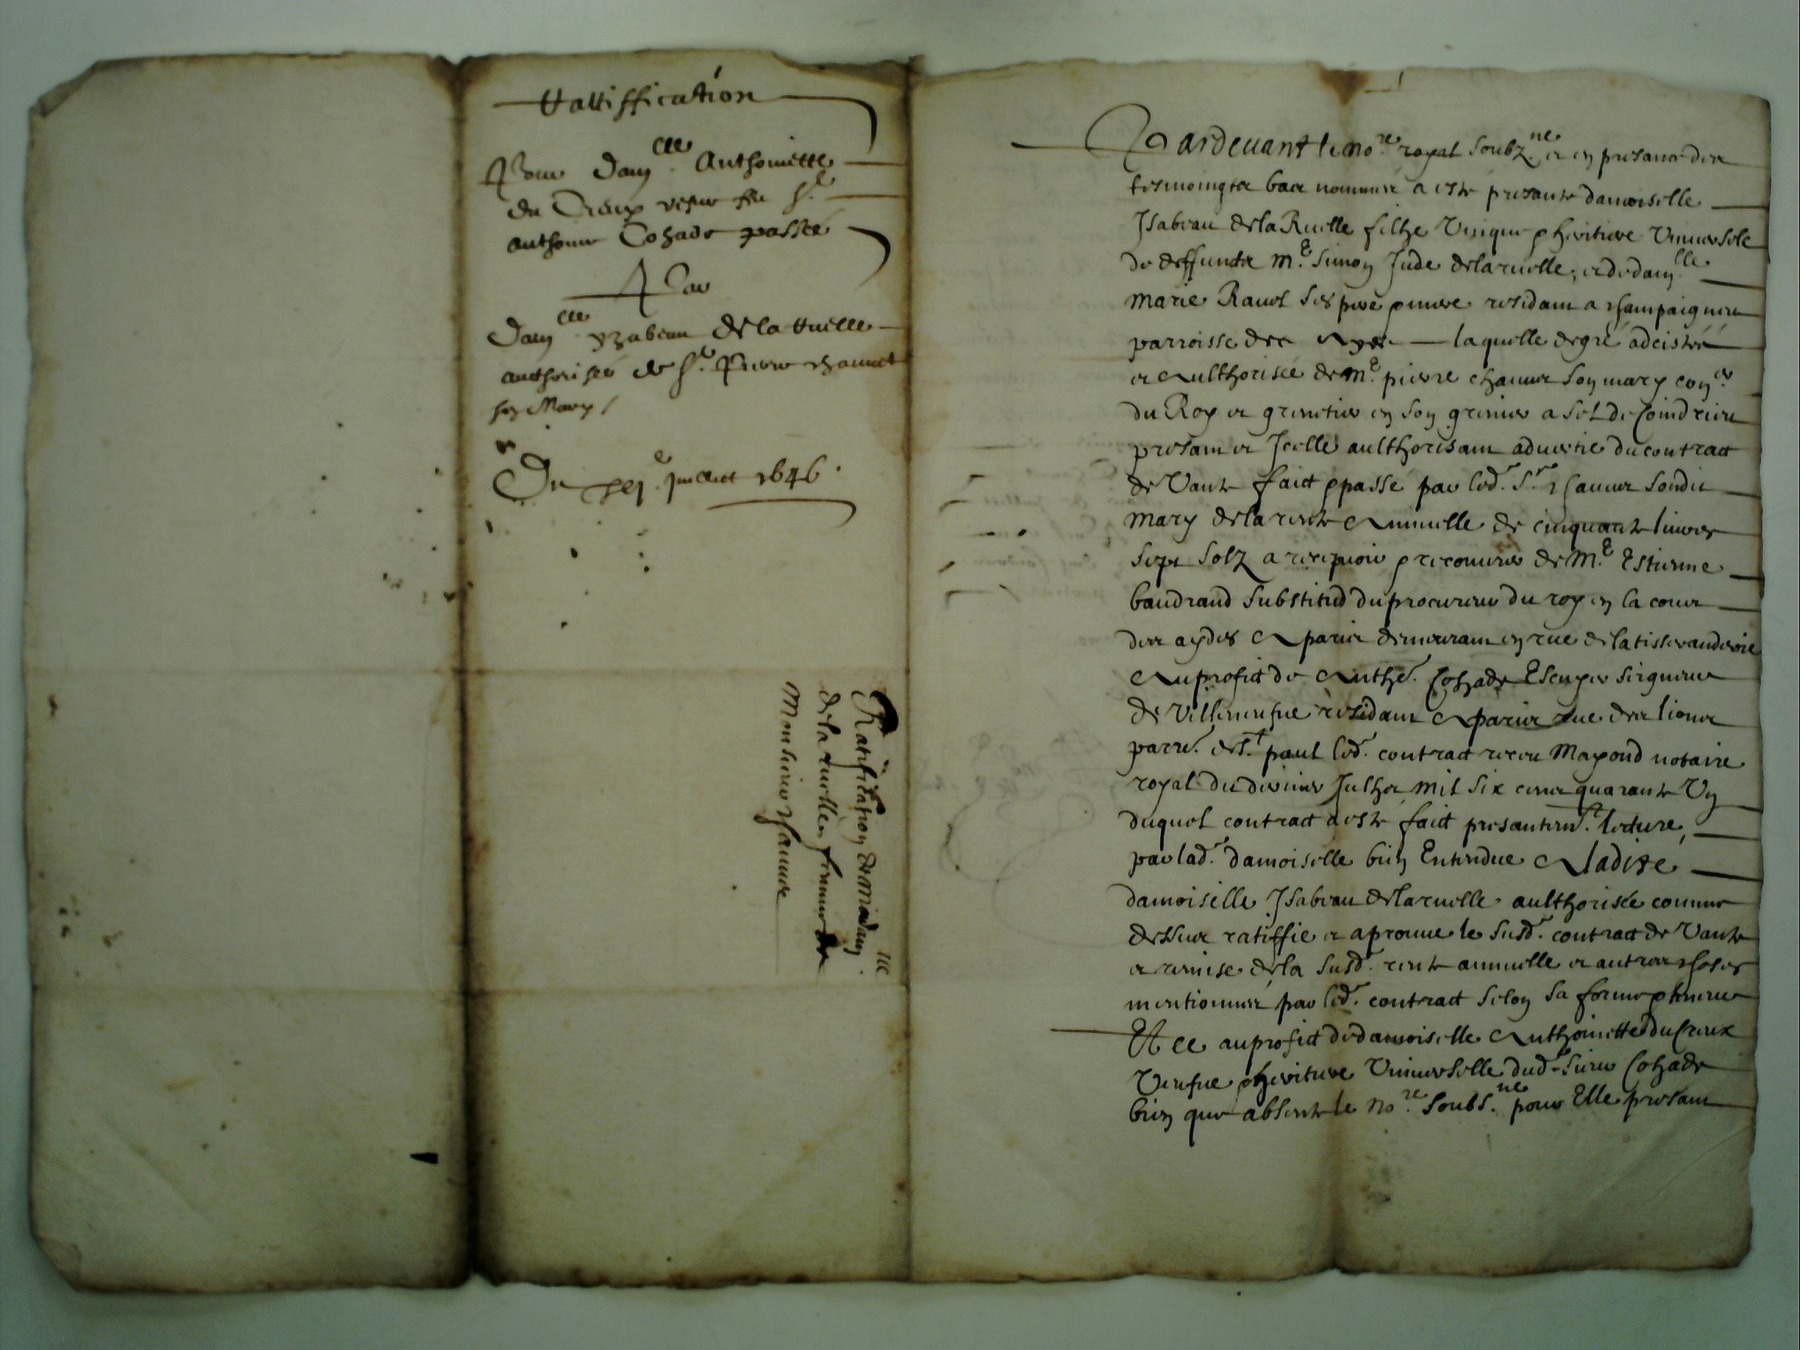 Rattiffication
Pour Dam.lle Anthoinette
du Creux vefve feu S.r
Anthoine Cohade passée
Par
Dam.lle yzabeau de la Ruelle
authorisée de S.r Pierre chauvet
son Mary /
Du xxj.e juillet 1646.
Ratiffication de madam.lle
de la ruelle femme de
Monsieur chauvet
Pardevant le no.re royal soubz.ne et en presance des
tesmoingtz bas nommés a esté presante damoiselle
Isabeau de la Ruelle filhe Unique & heritiere Universele
de deffunctz m.e Simon Jude de la ruelle, et de dam.lle
marie Ravel ses pere & mere residant a champaigneu
parroisse des Ayes laquelle de gré adcistée
et Aulthorisée de m.e pierre chauvet son mary con.er
du Roy et grenetier en son grenier a sel de Coindrieu
presant et Icelle aulthorisant advertie du contract
de Vante faict & passé par led.t S.r chauvet sondit
mary de la rente Annuelle de cinquante livres
sept solz a recepvoir & recouvrer de M.e Estienne
baudrand substitud du procureur du roy en la cour
des aydes A paris demeurant en rue de la tisseranderie
Au profict de Anth.e Cohade Escuyer seigneur
de Villeneufve residant A paris rue des lions
parr.e de S.t paul led.t contract receu Mayoud notaire
royal du dernier Julhet mil six cens quarante Un
duquel contract a esté faict presantem.t lecture,
par lad.e damoiselle bien Entendue A ladite
damoiselle Isabeau de la ruelle aulthorisée comme
dessus ratiffie et aprouve le susd.t contract de Vante
et remise de la susd.e rente annuelle et autres choses
mentionnés par led.t contract selon sa forme & teneur
Et ce au profict de damoiselle Anthoinette du Creux
Veufve & heritiere Universelle dud.t sieur Cohade
bien que absente le no.re soubs.ne pour Elle presant